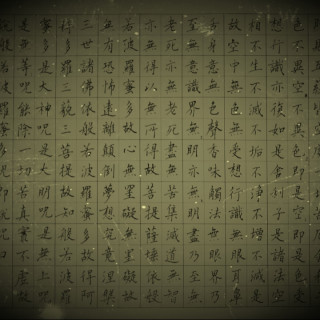 不異色色即是空空即是色受
想行識亦復如是舍利子是諸法空
相不生不滅不垢不淨不增不減是
故空中無色無受想行識無眼耳鼻
舌身意無色聲香味觸法無眼界乃
至無意識界無無明亦無無明盡乃至
老死亦無老死盡無苦集滅道無智
亦無得以無所得故菩提薩埵依般
若波羅蜜多故心無罣礙無罣礙故
無有恐怖遠離顛倒夢想究竟涅槃
三世諸佛依般若波羅蜜多故得阿
耨多羅三藐三菩提故知般若波羅
蜜多是大神呪是大明呪是無上呪
是無等等呪能除一切苦真實不虛故
說般若波羅蜜多呪即說呪